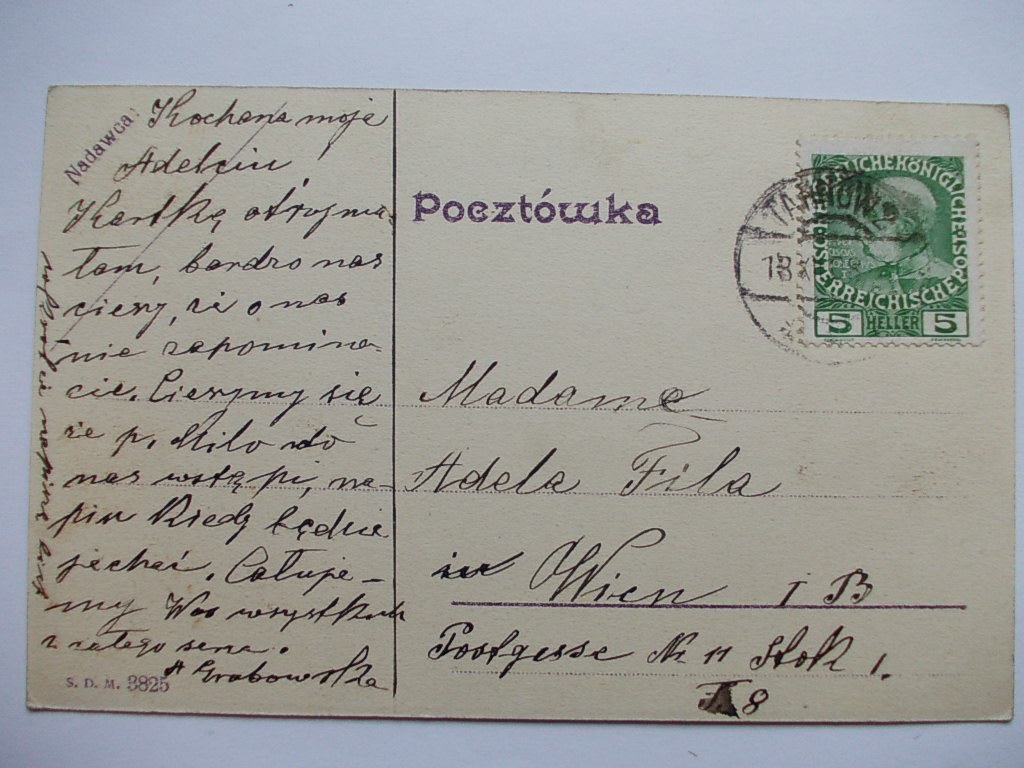 Nadawca:
Kochana moja
Adelciu,
Kartkę otrzyma-
łam, bardzo nas
cieszy, że o nas
nie zapomina-
cie. Cieszymy się
że p. Milo do
nas wstąpi, na-
pisz kiedy będzie
jechał. Całuje-
my Was wszystkich
z całego serca.
A Grabowska
wkrótce napiszę
S. D. M. 3825
Pocztówka
TARNÓW 2
18
KAISERLICHEKÖNIGLICHE ÖSTERREICHISCHE POST
5 HELLER 5
Madame
Adela Fila
in Wien I B
Postgasse Nr 11 Stok 1.
T. 8